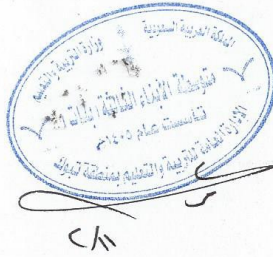 المملكة العربية السعودية
وزارة التربية والتعليم
متوسطة الأبناء الثالثة
تأسست عام ١٤٠٥هـ
الإدارة العامة للتربية والتعليم بمنطقة تبوك
٢/١١